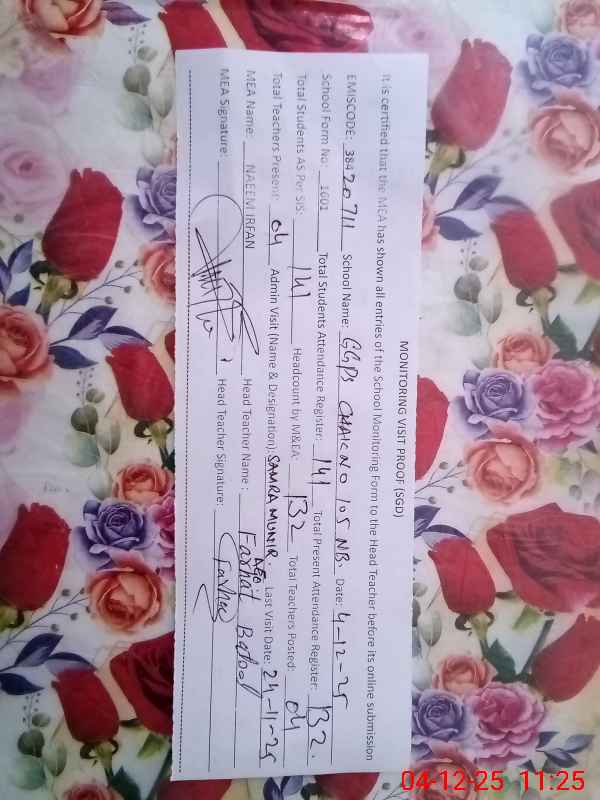 MONITORING VISIT PROOF (SGD)
It is certified that the MEA has shown all entries of the School Monitoring Form to the Head Teacher before its online submission
EMISCODE: 38420711 School Name: GGPS CHAK NO 105 NB. Date: 4-12-25
School Form No: 1601 Total Students Attendance Register: 141 Total Present Attendance Register: 132.
Total Students AS Per SIS: 141 Headcount by M&EA: 132 Total Teachers Posted: 04
Total Teachers Present: 04 Admin Visit (Name & Designation) SAMRA MUNIR. AEO. Last Visit Date: 24-11-25
MEA Name: NAEEM IRFAN Head Teacher Name: Farhat Batool
MEA Signature: Head Teacher Signature: Farhat
04-12-25 11:25